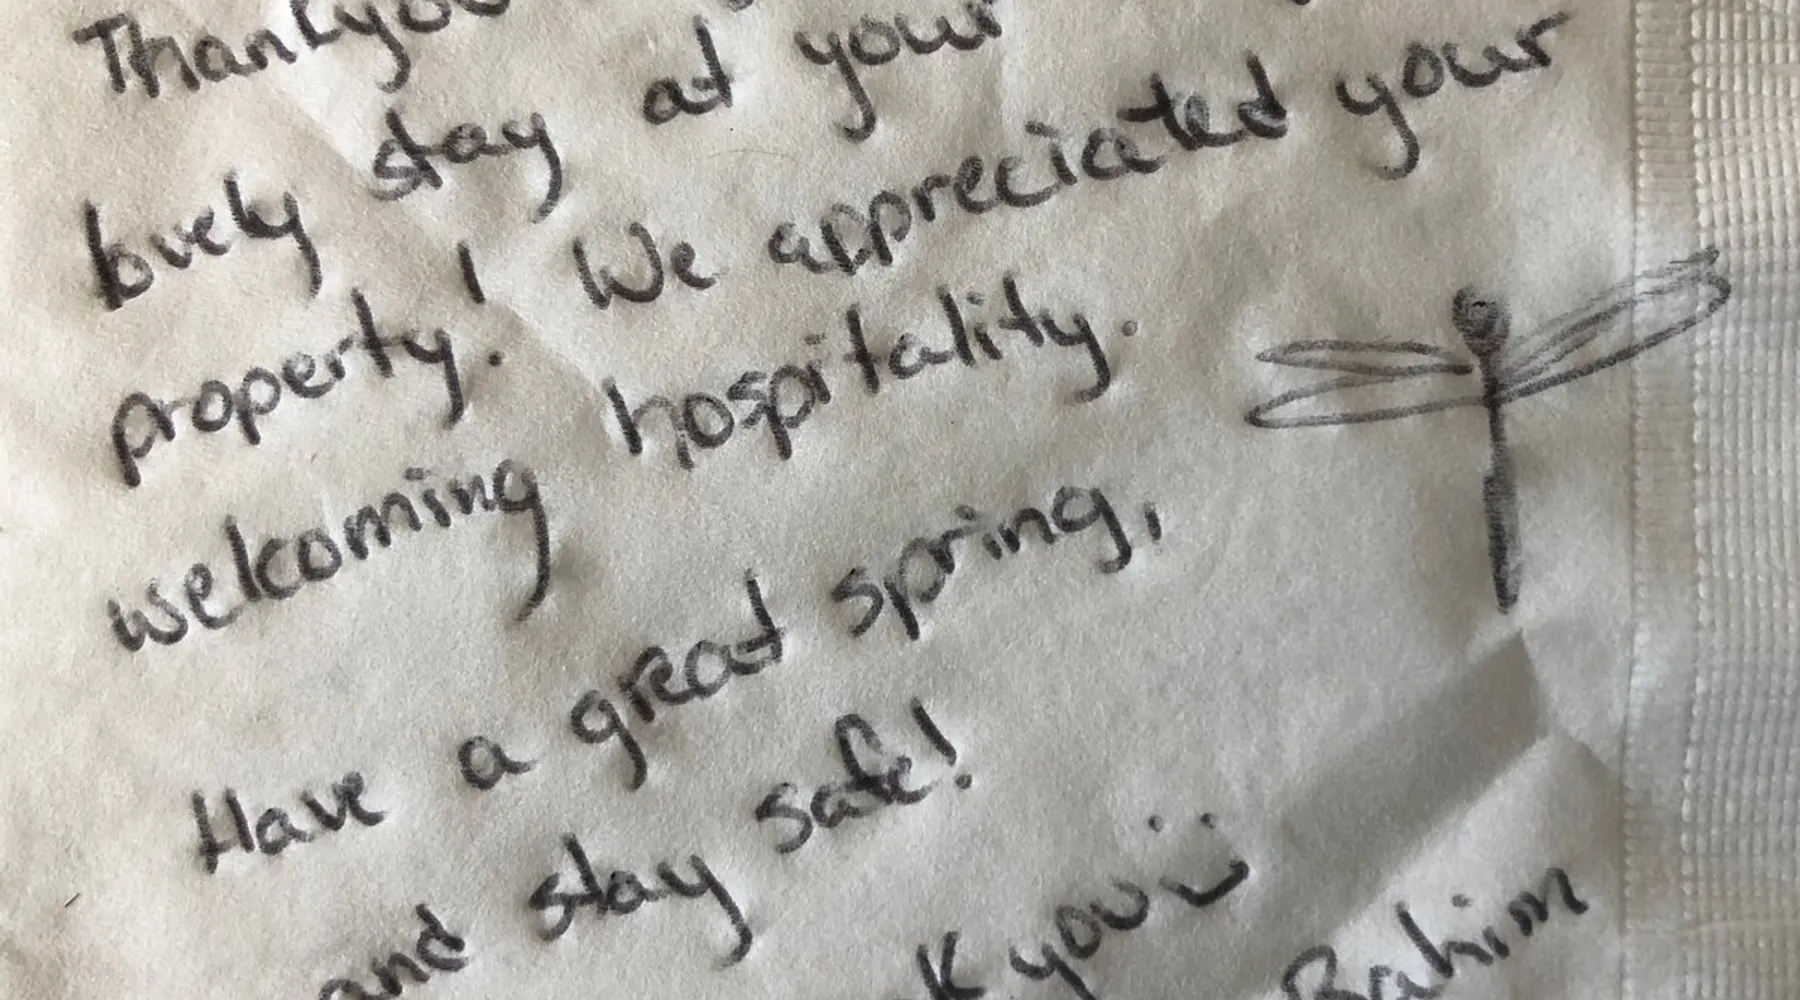 Thankyou
lovely stay at your
property! We appreciated your
welcoming hospitality.
Have a great spring,
and stay safe!
you
Rahim